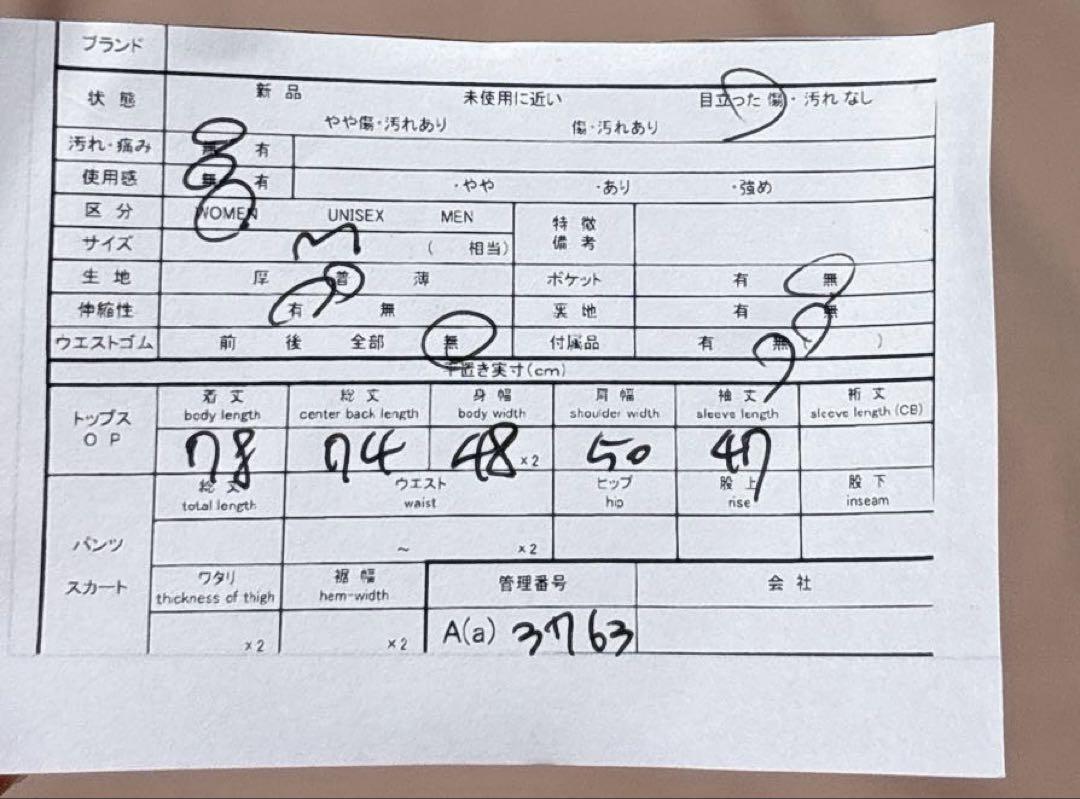 ブランド
状態 新品 未使用に近い 目立った傷・汚れなし
やや傷・汚れあり 傷・汚れあり
汚れ・痛み 無 有
使用感 無 有 ・やや ・あり ・強め
区分 WOMEN UNISEX MEN 特徴
備考
サイズ M ( 相当)
生地 厚 普 薄 ポケット 有 無
伸縮性 有 無 裏地 有 無
ウエストゴム 前 後 全部 無 付属品 有 無 ( )
平置き実寸(cm)
トップス
OP
着丈 総丈 身幅 肩幅 袖丈 裄丈
body length center back length body width shoulder width sleeve length sleeve length (CB)
78 74 48 ×2 50 47
総丈 ウエスト ヒップ 股上 股下
total length waist hip rise inseam
パンツ ~ ×2
スカート
ワタリ 裾幅 管理番号 会社
thickness of thigh hem-width
×2 ×2 A(a) 3763